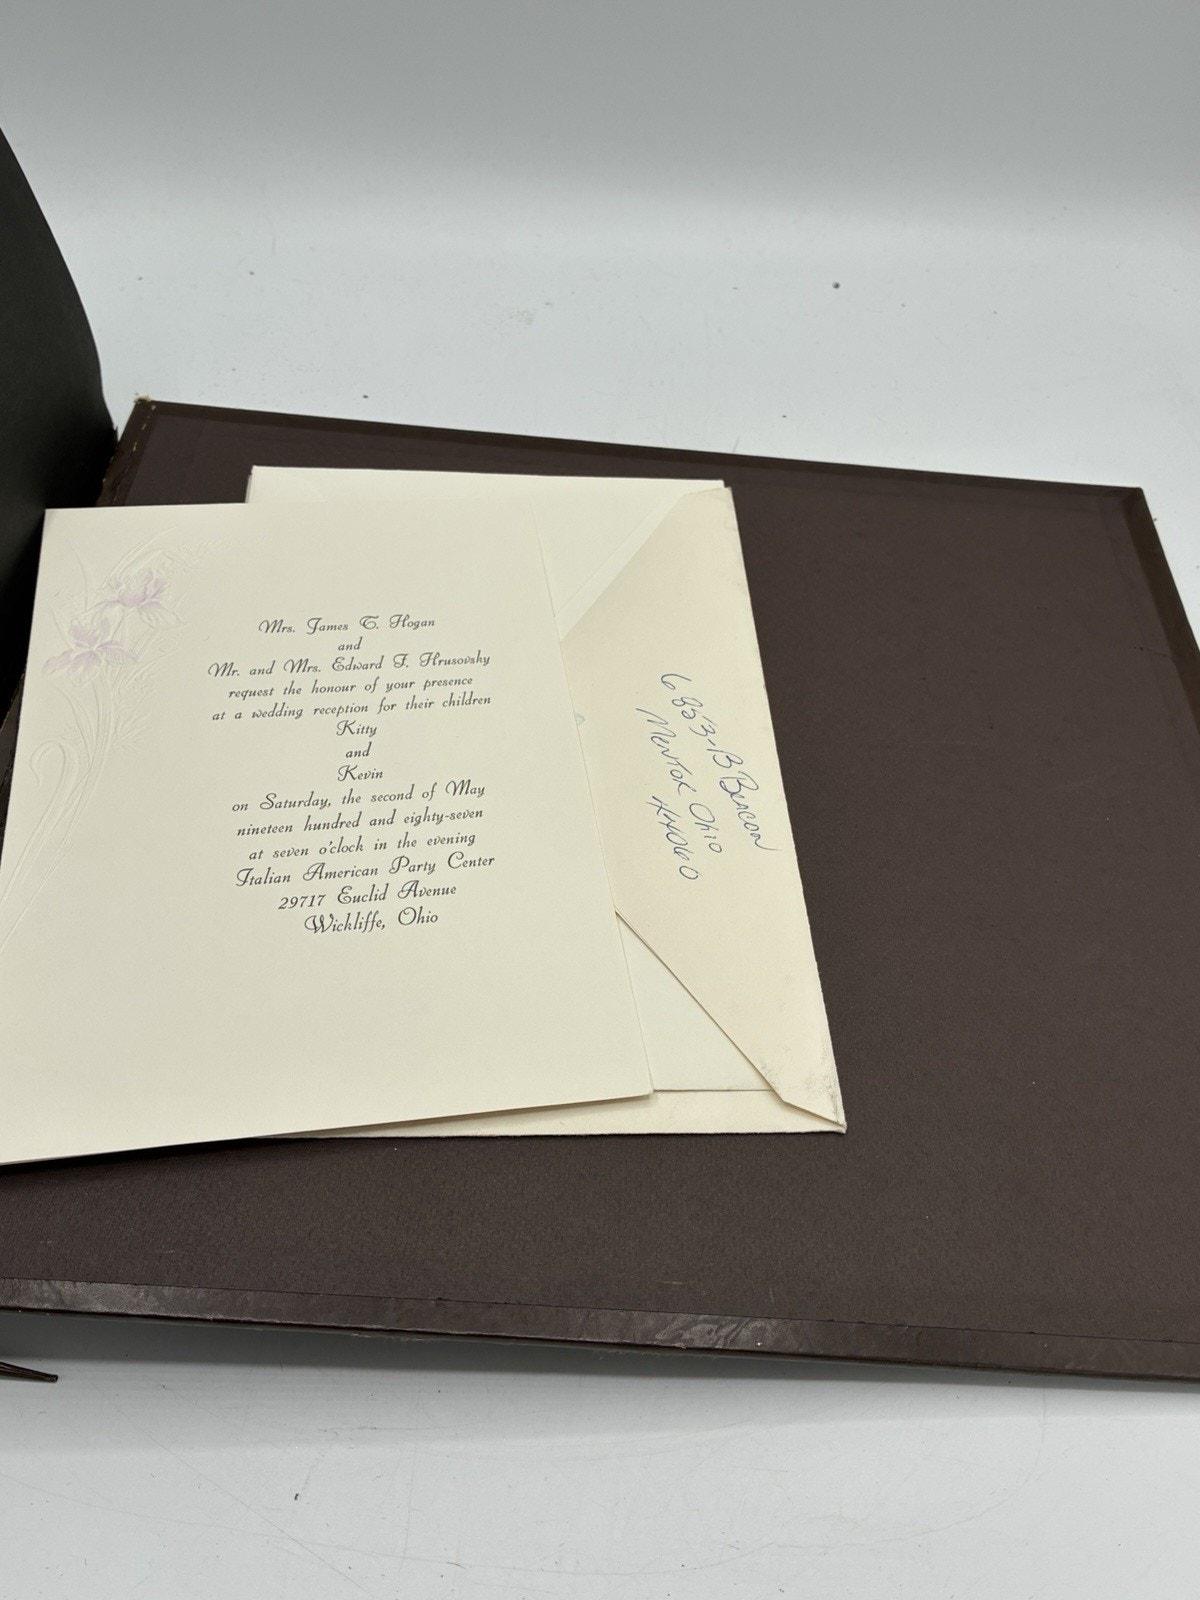 Mrs. James T. Hogan
and
Mr. and Mrs. Edward F. Hrusovsky
request the honour of your presence
at a wedding reception for their children
Kitty
and
Kevin
on Saturday, the second of May
nineteen hundred and eighty-seven
at seven o'clock in the evening
Italian American Party Center
29717 Euclid Avenue
Wickliffe, Ohio
6853-B Beacon
Mentor Ohio
44060